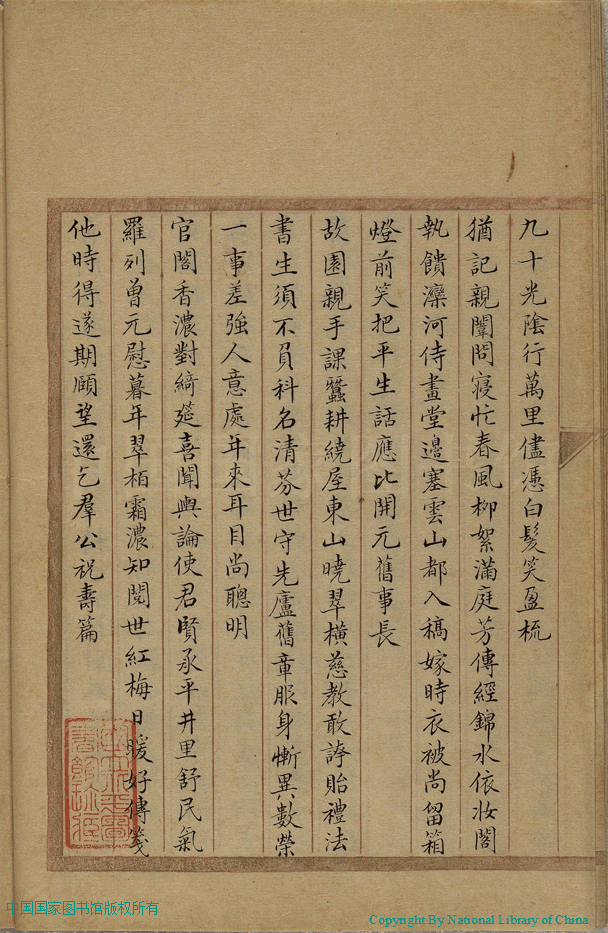 九十光陰行萬里儘憑白髮笑盈梳
猶記親闈問寢忙春風柳絮滿庭芳傳經錦水依妝閣
執饋灤河侍畫堂邊塞雲山都入稿嫁時衣被尚留箱
燈前笑把平生話應比開元舊事長
故園親手課蠶耕繞屋東山曉翠橫慈教敢誇貽禮法
書生須不負科名清芬世守先廬舊章服身慚異數榮
一事差強人意處年來耳目尚聰明
官閣香濃對綺筵喜聞輿論使君賢承平井里舒民氣
羅列曾元慰暮年翠栢霜濃知閱世紅梅日暖好傳箋
他時得遂期頤望還乞羣公祝壽篇
中国国家图书馆版权所有
Copyright By National Library of China